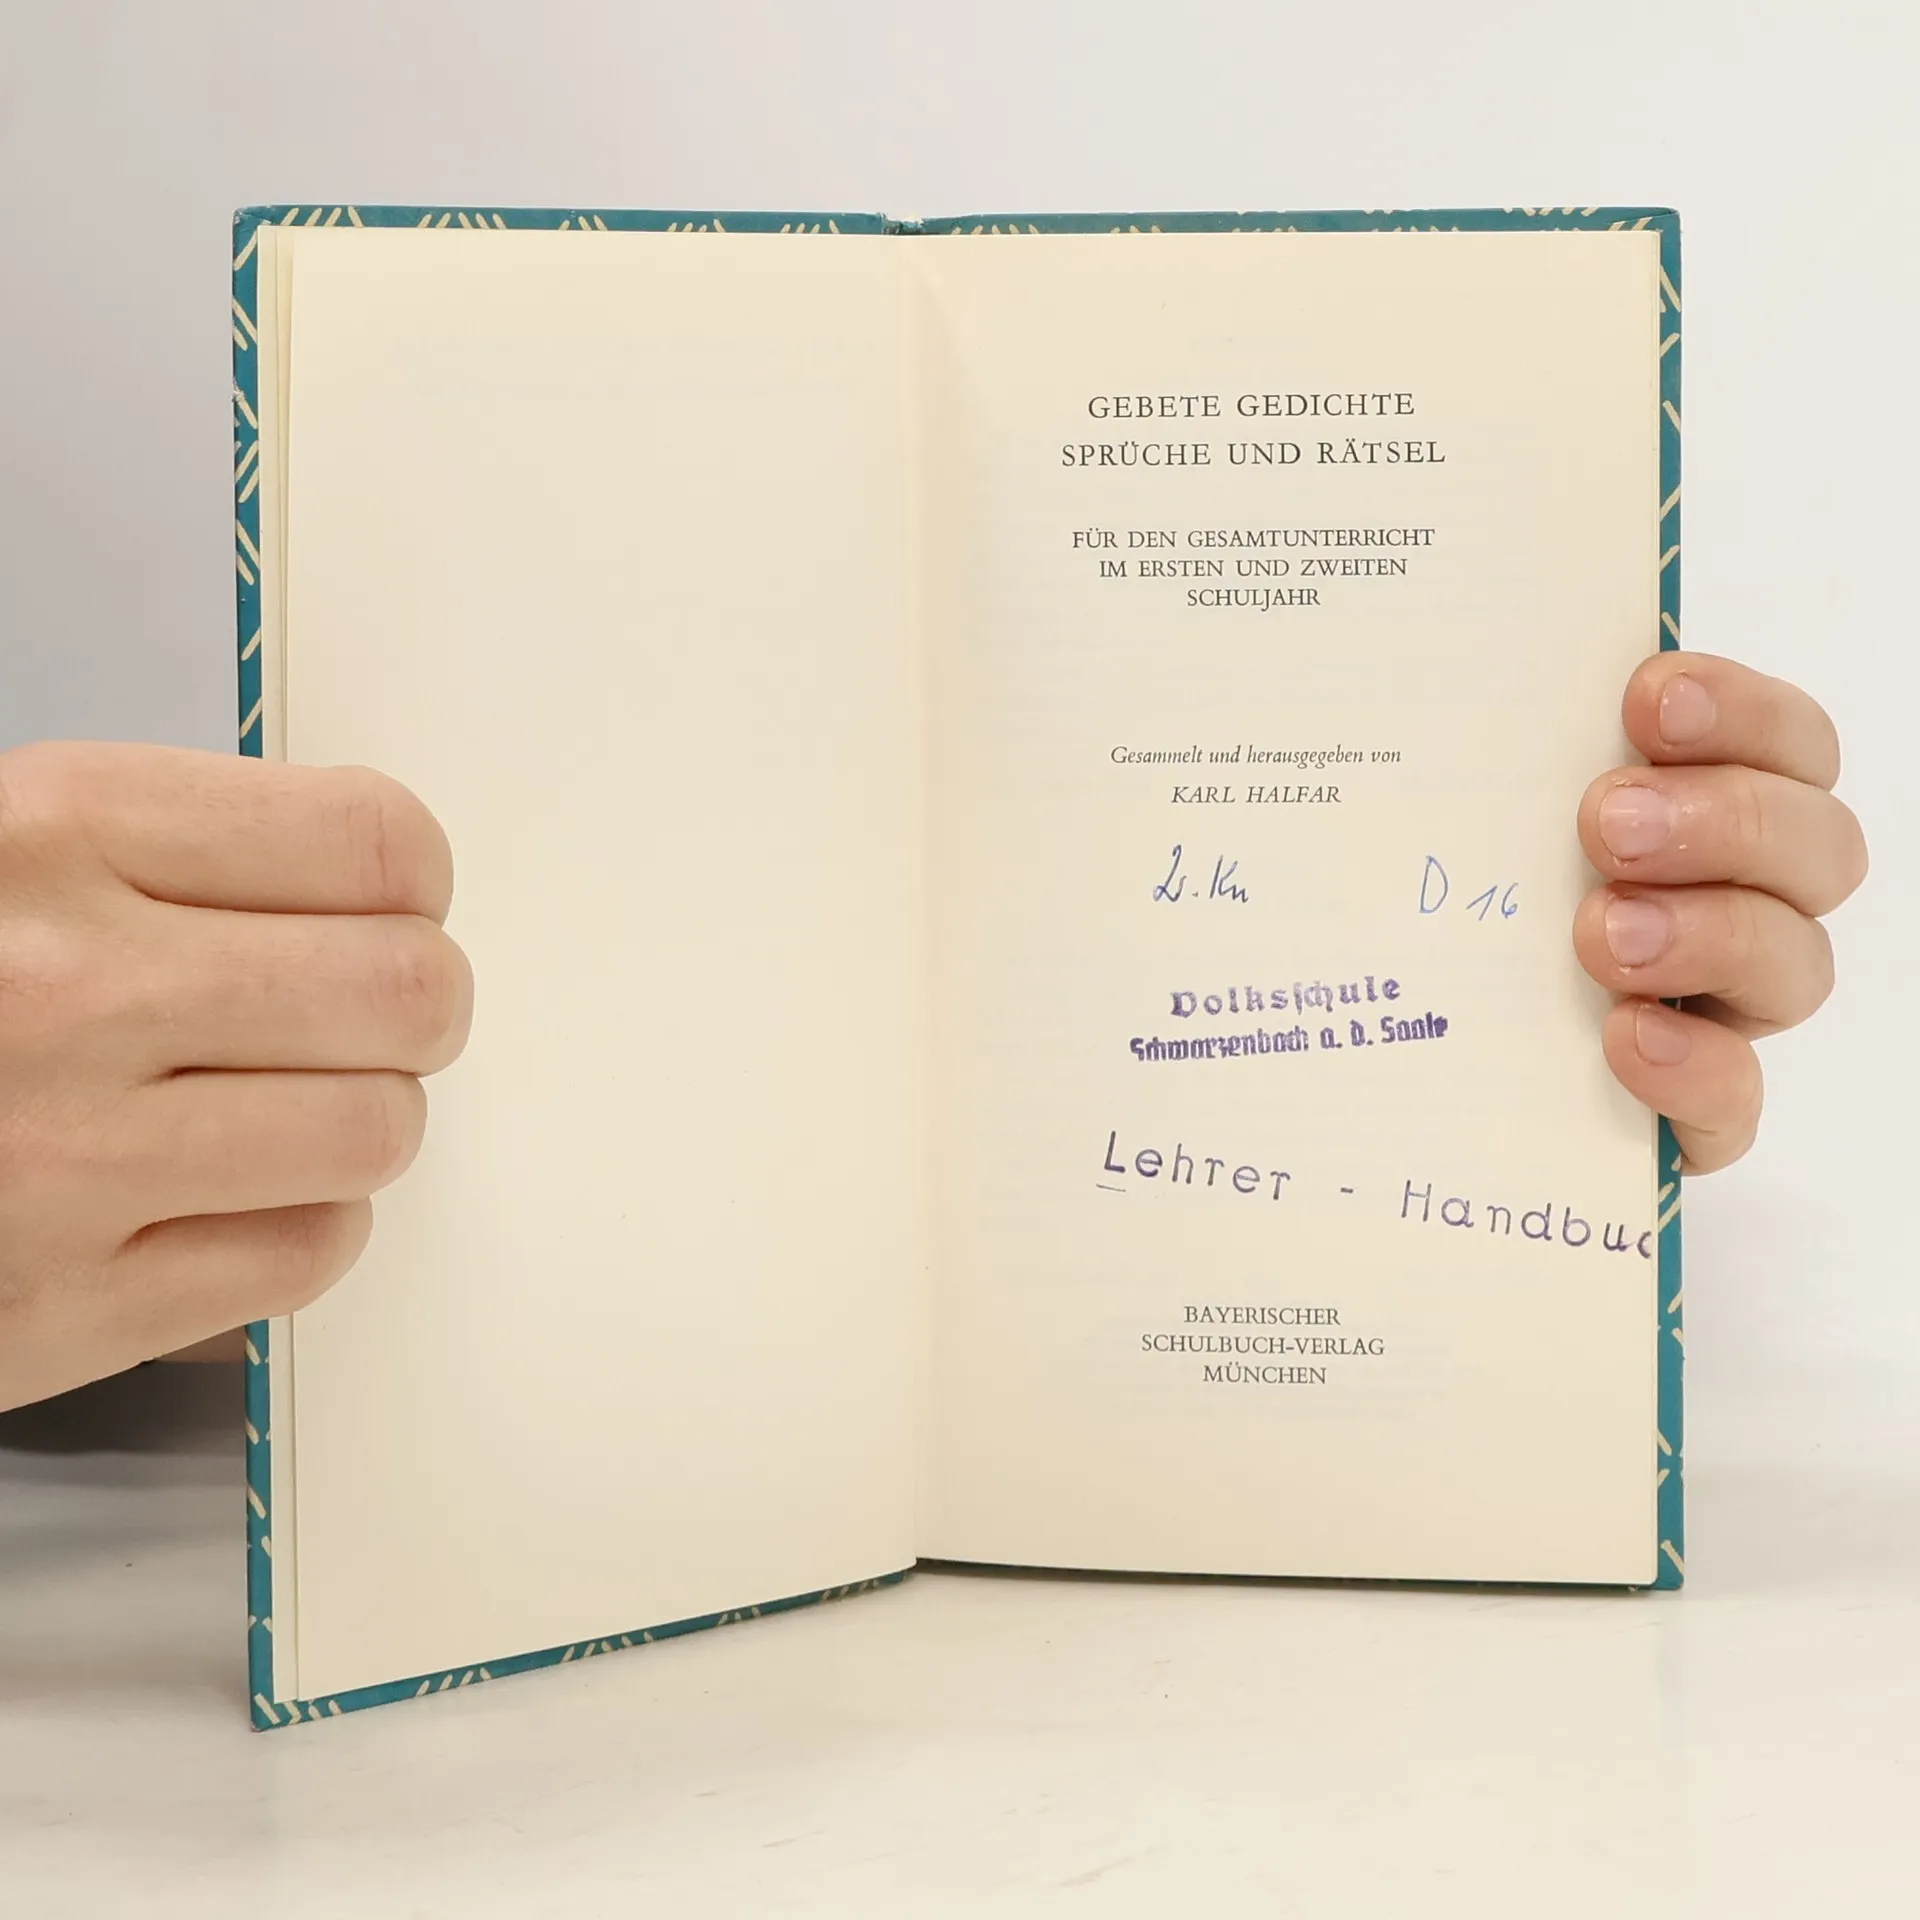 GEBETE GEDICHTE
SPRÜCHE UND RÄTSEL
FÜR DEN GESAMTUNTERRICHT
IM ERSTEN UND ZWEITEN
SCHULJAHR
Gesammelt und herausgegeben von
KARL HALFAR
D 16
Volksschule
Schwarzenbach a. d. Saale
Lehrer - Handbuc
BAYERISCHER
SCHULBUCH-VERLAG
MÜNCHEN